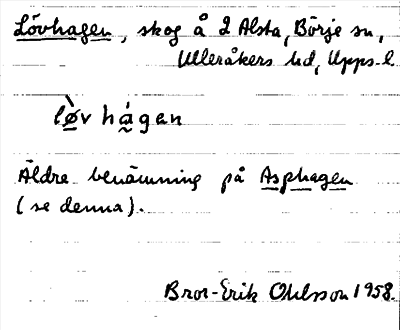 Lövhagen, skog å 2 Alsta, Börje sn,
Ulleråkers hd, Upps. l.
lø̀v hágen
Äldre benämning på Asphagen
(se denna).
Bror-Erik Ohlsson 1958.